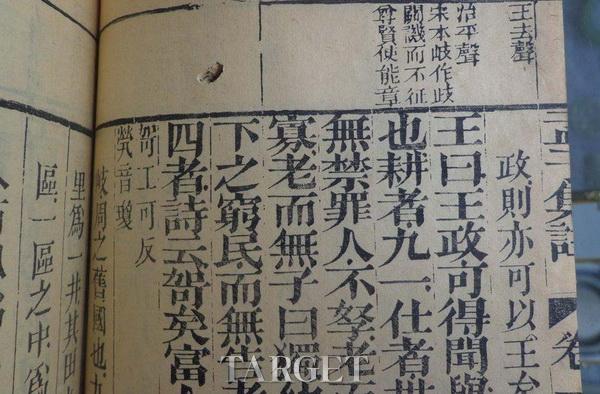 王去聲
治平聲
宋本岐作歧
關譏而不征
尊賢使能章
孟子集註 卷
政則亦可以王矣
王曰王政可得聞與
也耕者九一仕者世
無禁罪人不孥老而
寡老而無子曰獨幼
下之窮民而無告者
四者詩云哿矣富人
哿工可反
煢音瓊
岐周之舊國也九
里爲一井其田
區一區之中爲
TARGET